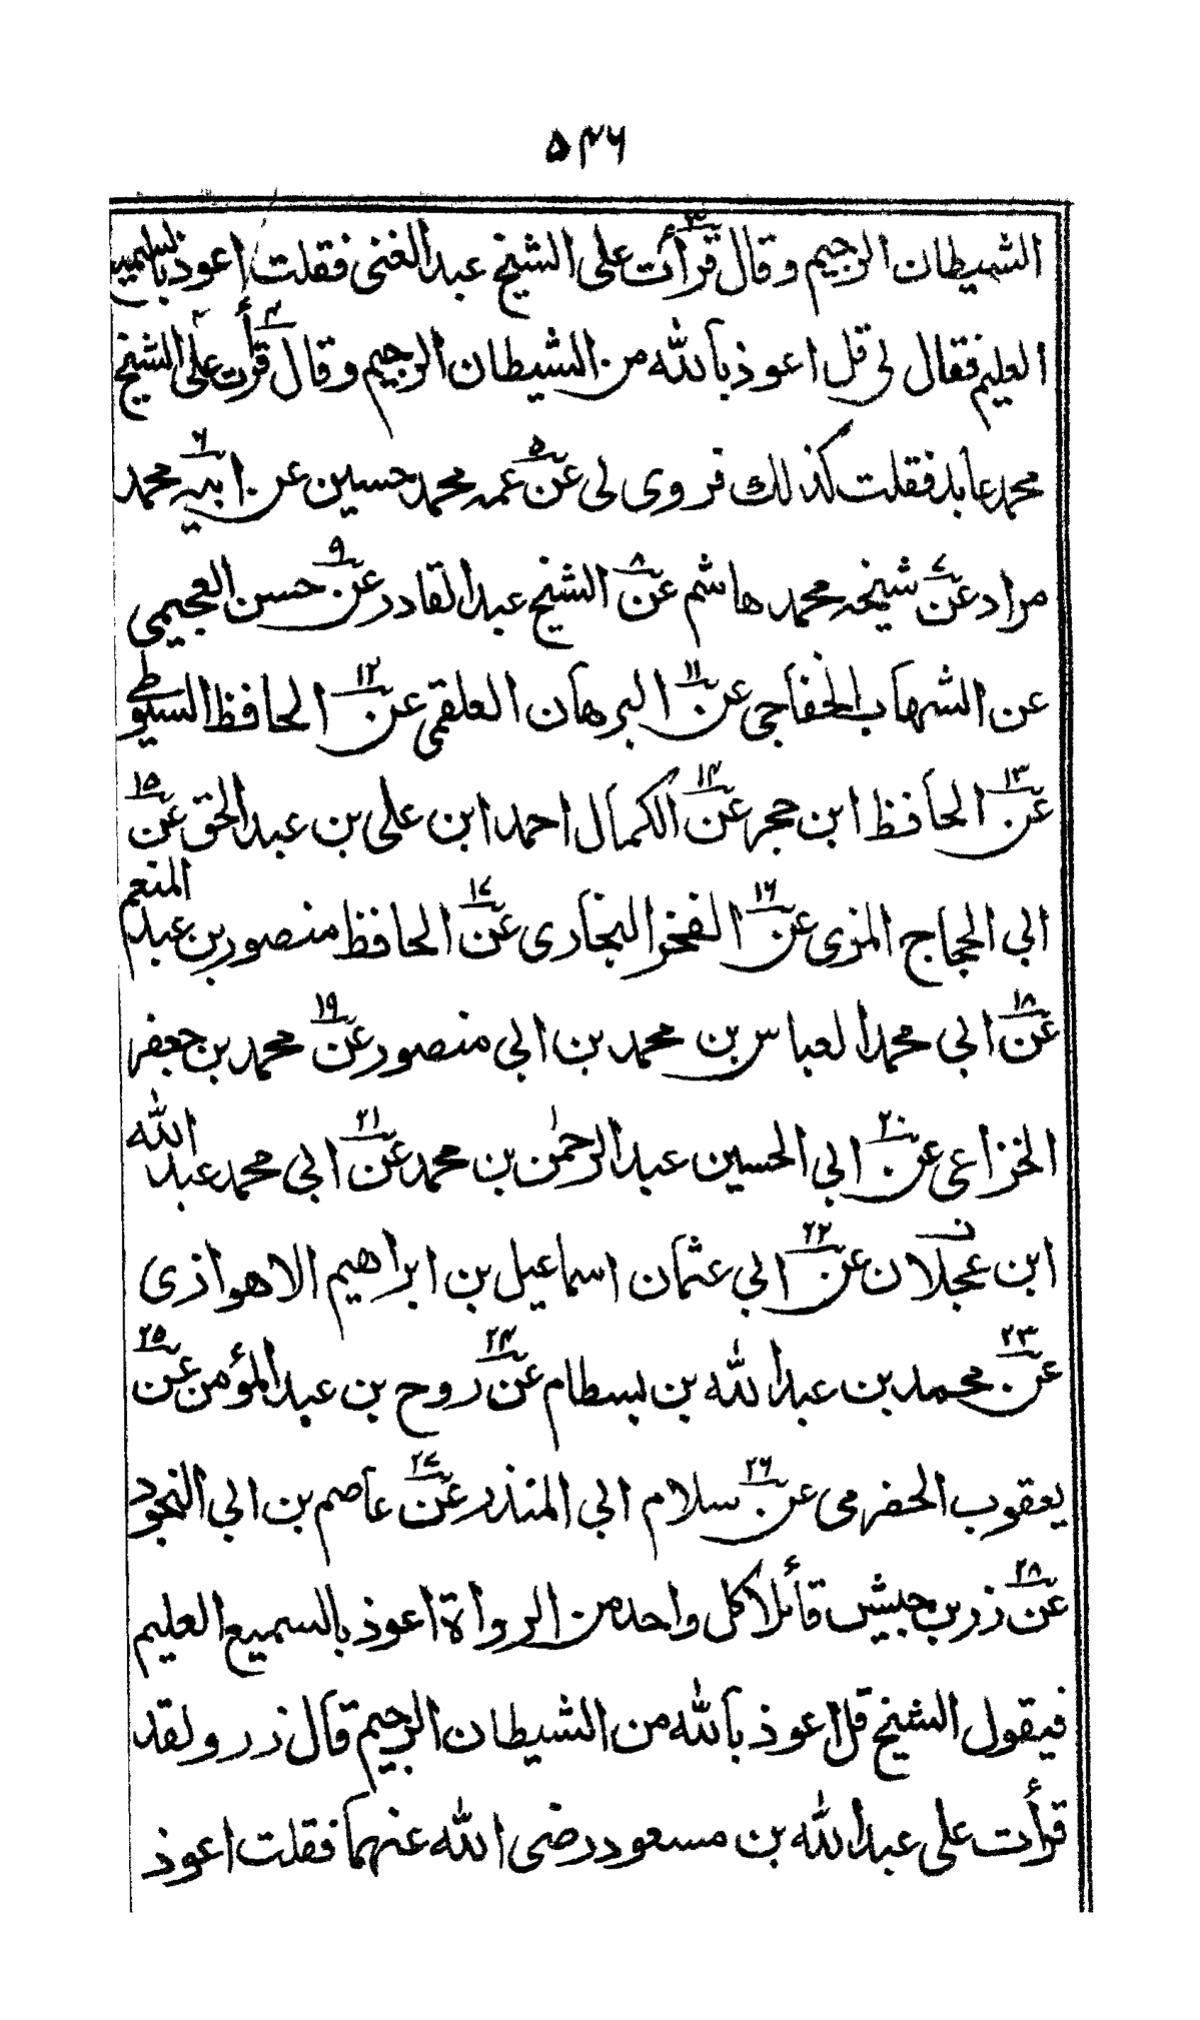 ۵۴۶
الشيطان الرجيم وقال قرأت۳ على الشيخ عبدالغنى فقلت اعوذ بالسميع
العليم فقال لى قل اعوذ بالله من الشيطان الرجيم وقال قرأت۴ على الشيخ
محمد عابد فقلت كذلك فروى لى عن۵ عمه محمد حسين عن۶ ابيه محمد
مراد عن۷ شيخه محمد هاشم عن۸ الشيخ عبدالقادر عن۹ حسن العجيمى
عن الشهاب الخفاجى عن۱۱ البرهان العلقمى عن۱۲ الحافظ السيوطى
عن۱۳ الحافظ ابن حجر عن۱۴ الكمال احمد ابن على بن عبدالحق عن۱۵
ابى الحجاج المزى عن۱۶ الفخر البخارى عن۱۷ الحافظ منصور بن عبد المنعم
عن۱۸ ابى محمد العباس بن محمد بن ابى منصور عن۱۹ محمد بن جعفر
الخزاعى عن۲۰ ابى الحسين عبدالرحمٰن بن محمد عن۲۱ ابى محمد عبد الله
ابن عجلان عن۲۲ ابى عثمان اسماعيل بن ابراهيم الاهوازى
عن۲۳ محمد بن عبدالله بن بسطام عن۲۴ روح بن عبدالمؤمن عن۲۵
يعقوب الحضرمى عن۲۶ سلام ابى المنذر عن۲۷ عاصم بن ابى النجود
عن۲۸ زر بن حبيش قائلا كل واحد من الرواة اعوذ بالسميع العليم
فيقول الشيخ قل اعوذ بالله من الشيطان الرجيم قال زر ولقد
قرأت على عبدالله بن مسعود رضى الله عنهما فقلت اعوذ